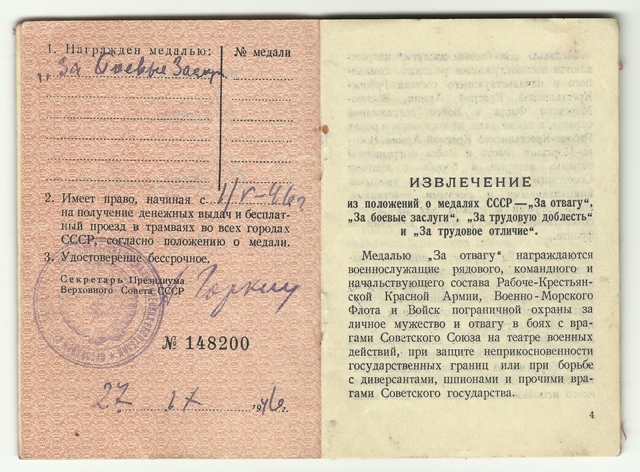 1. Награжден медалью: № медали
„За боевые Заслуг
2. Имеет право, начиная с 1/V-46г
на получение денежных выдач и бесплат-
ный проезд в трамваях во всех городах
СССР, согласно положению о медали.
3. Удостоверение бессрочное.
Секретарь Президиума
Верховного Совета СССР
Горкин
№ 148200
27 IX 1946г.
ИЗВЛЕЧЕНИЕ
из положений о медалях СССР—„За отвагу“,
„За боевые заслуги“, „За трудовую доблесть“
и „За трудовое отличие“.
Медалью „За отвагу“ награждаются
военнослужащие рядового, командного и
начальствующего состава Рабоче-Крестьян-
ской Красной Армии, Военно-Морского
Флота и Войск пограничной охраны за
личное мужество и отвагу в боях с вра-
гами Советского Союза на театре военных
действий, при защите неприкосновенности
государственных границ или при борьбе
с диверсантами, шпионами и прочими вра-
гами Советского государства.
4